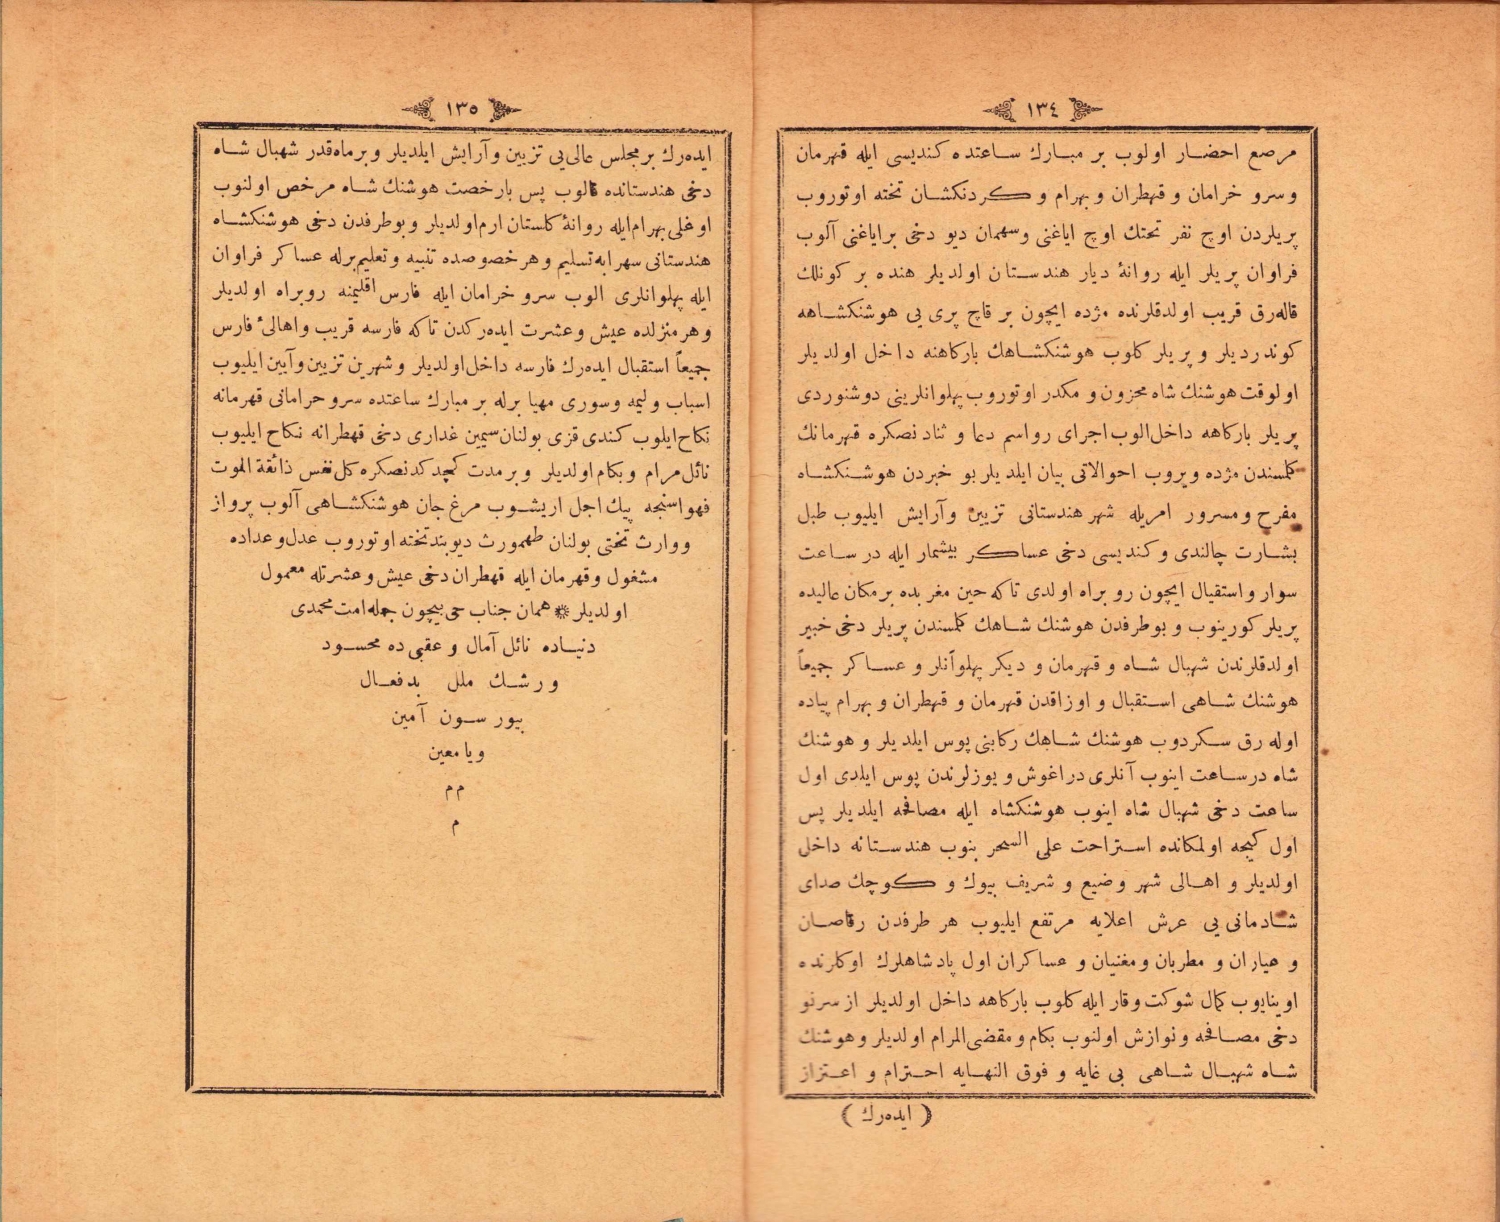 ١٣٤
مرصع احضار اولوب بر مبارك ساعتده كنديسى ايله قهرمان
وسرو خرامان و قهطران و بهرام و كردنكشان تخته اوتوروب
پريلردن اوچ نفر تختك اوچ اياغنى وسهمان ديو دخى براياغنى آلوب
فراوان پريلر ايله روانهٔ ديار هندستان اولديلر هنده بر كونلك
قاله‌رق قريب اولدقلرنده مژده ايچون بر قاچ پرى يى هوشنكشاهه
كوندرديلر و پريلر كلوب هوشنكشاهك باركاهنه داخل اولديلر
اولوقت هوشنك شاه محزون و مكدر اوتوروب پهلوانلرينى دوشنوردى
پريلر باركاهه داخل الوب اجراى رواسم دعا و ثنادنصكره قهرمانك
كلمسندن مژده ويروب احوالاتى بيان ايلديلر بو خبردن هوشنكشاه
مفرح ومسرور امريله شهر هندستانى تزيين وآرايش ايليوب طبل
بشارت چالندى وكنديسى دخى عساكر بيشمار ايله در ساعت
سوار واستقبال ايچون روبراه اولدى تاكه حين مغربده برمكان عاليده
پريلر كورينوب و بوطرفدن هوشنك شاهك كلمسندن پريلر دخى خبير
اولدقلرندن شهبال شاه و قهرمان و ديكر پهلوانلر و عساكر جميعاً
هوشنك شاهى استقبال و اوزاقدن قهرمان و قهطران و بهرام پياده
اوله رق سكردوب هوشنك شاهك ركابنى پوس ايلديلر و هوشنك
شاه درساعت اينوب آنلرى دراغوش و يوزلرندن پوس ايلدى اول
ساعت دخى شهبال شاه اينوب هوشنكشاه ايله مصافحه ايلديلر پس
اول كيجه اولمكانده استراحت على السحر بنوب هندستانه داخل
اولديلر و اهالى شهر وضيع و شريف بيوك و كوچك صداى
شادمانى يى عرش اعلايه مرتفع ايليوب هر طرفدن رقاصان
و عياران و مطربان ومغنيان و عساكران اول پادشاهلرك اوكلرنده
اوينايوب كمال شوكت وقار ايله كلوب باركاهه داخل اولديلر از سرنو
دخى مصافحه ونوازش اولنوب بكام ومقضى المرام اولديلر وهوشنك
شاه شهبال شاهى بى غايه و فوق النهايه احترام و اعتزاز
( ايده‌رك )
١٣٥
ايده‌رك بر مجلس عالى‌يى تزيين وآرايش ايلديلر وبرماه‌قدر شهبال شاه
دخى هندستانده قالوب پس بارخصت هوشنك شاه مرخص اولنوب
اوغلى بهرام‌ايله روانهٔ كلستان ارم‌اولديلر وبوطرفدن دخى هوشنكشاه
هندستانى سهرابه‌تسليم وهرخصوصده تنبيه وتعليم‌برله عساكر فراوان
ايله پهلوانلرى الوب سرو خرامان ايله فارس اقليمنه روبراه اولديلر
وهرمنزلده عيش وعشرت ايده‌ركدن تاكه فارسه قريب واهالئ فارس
جميعاً استقبال ايده‌رك فارسه داخل‌اولديلر وشهرين تزيين وآيين ايليوب
اسباب وليمه وسورى مهيا برله بر مبارك ساعتده سرو حرامانى قهرمانه
نكاح‌ايلوب كندى قزى بولنان‌سيمين غدارى دخى قهطرانه نكاح ايليوب
نائل مرام وبكام اولديلر وبرمدت كچدكدنصكره كل نفس ذائقة الموت
فهواسنجه پيك اجل اريشوب مرغ جان هوشنكشاهى آلوب پرواز
ووارث تختى بولنان طهمورث ديوبندتخته اوتوروب عدل‌وعداده
مشغول وقهرمان ايله قهطران دخى عيش وعشرتله معمول
اولديلر ❊ همان جناب حى بيچون جمله‌امت‌محمدى
دنياده نائل آمال و عقبى ده محسود
ورشك ملل بدفعال
بيورسون آمين
ويامعين
م م
م